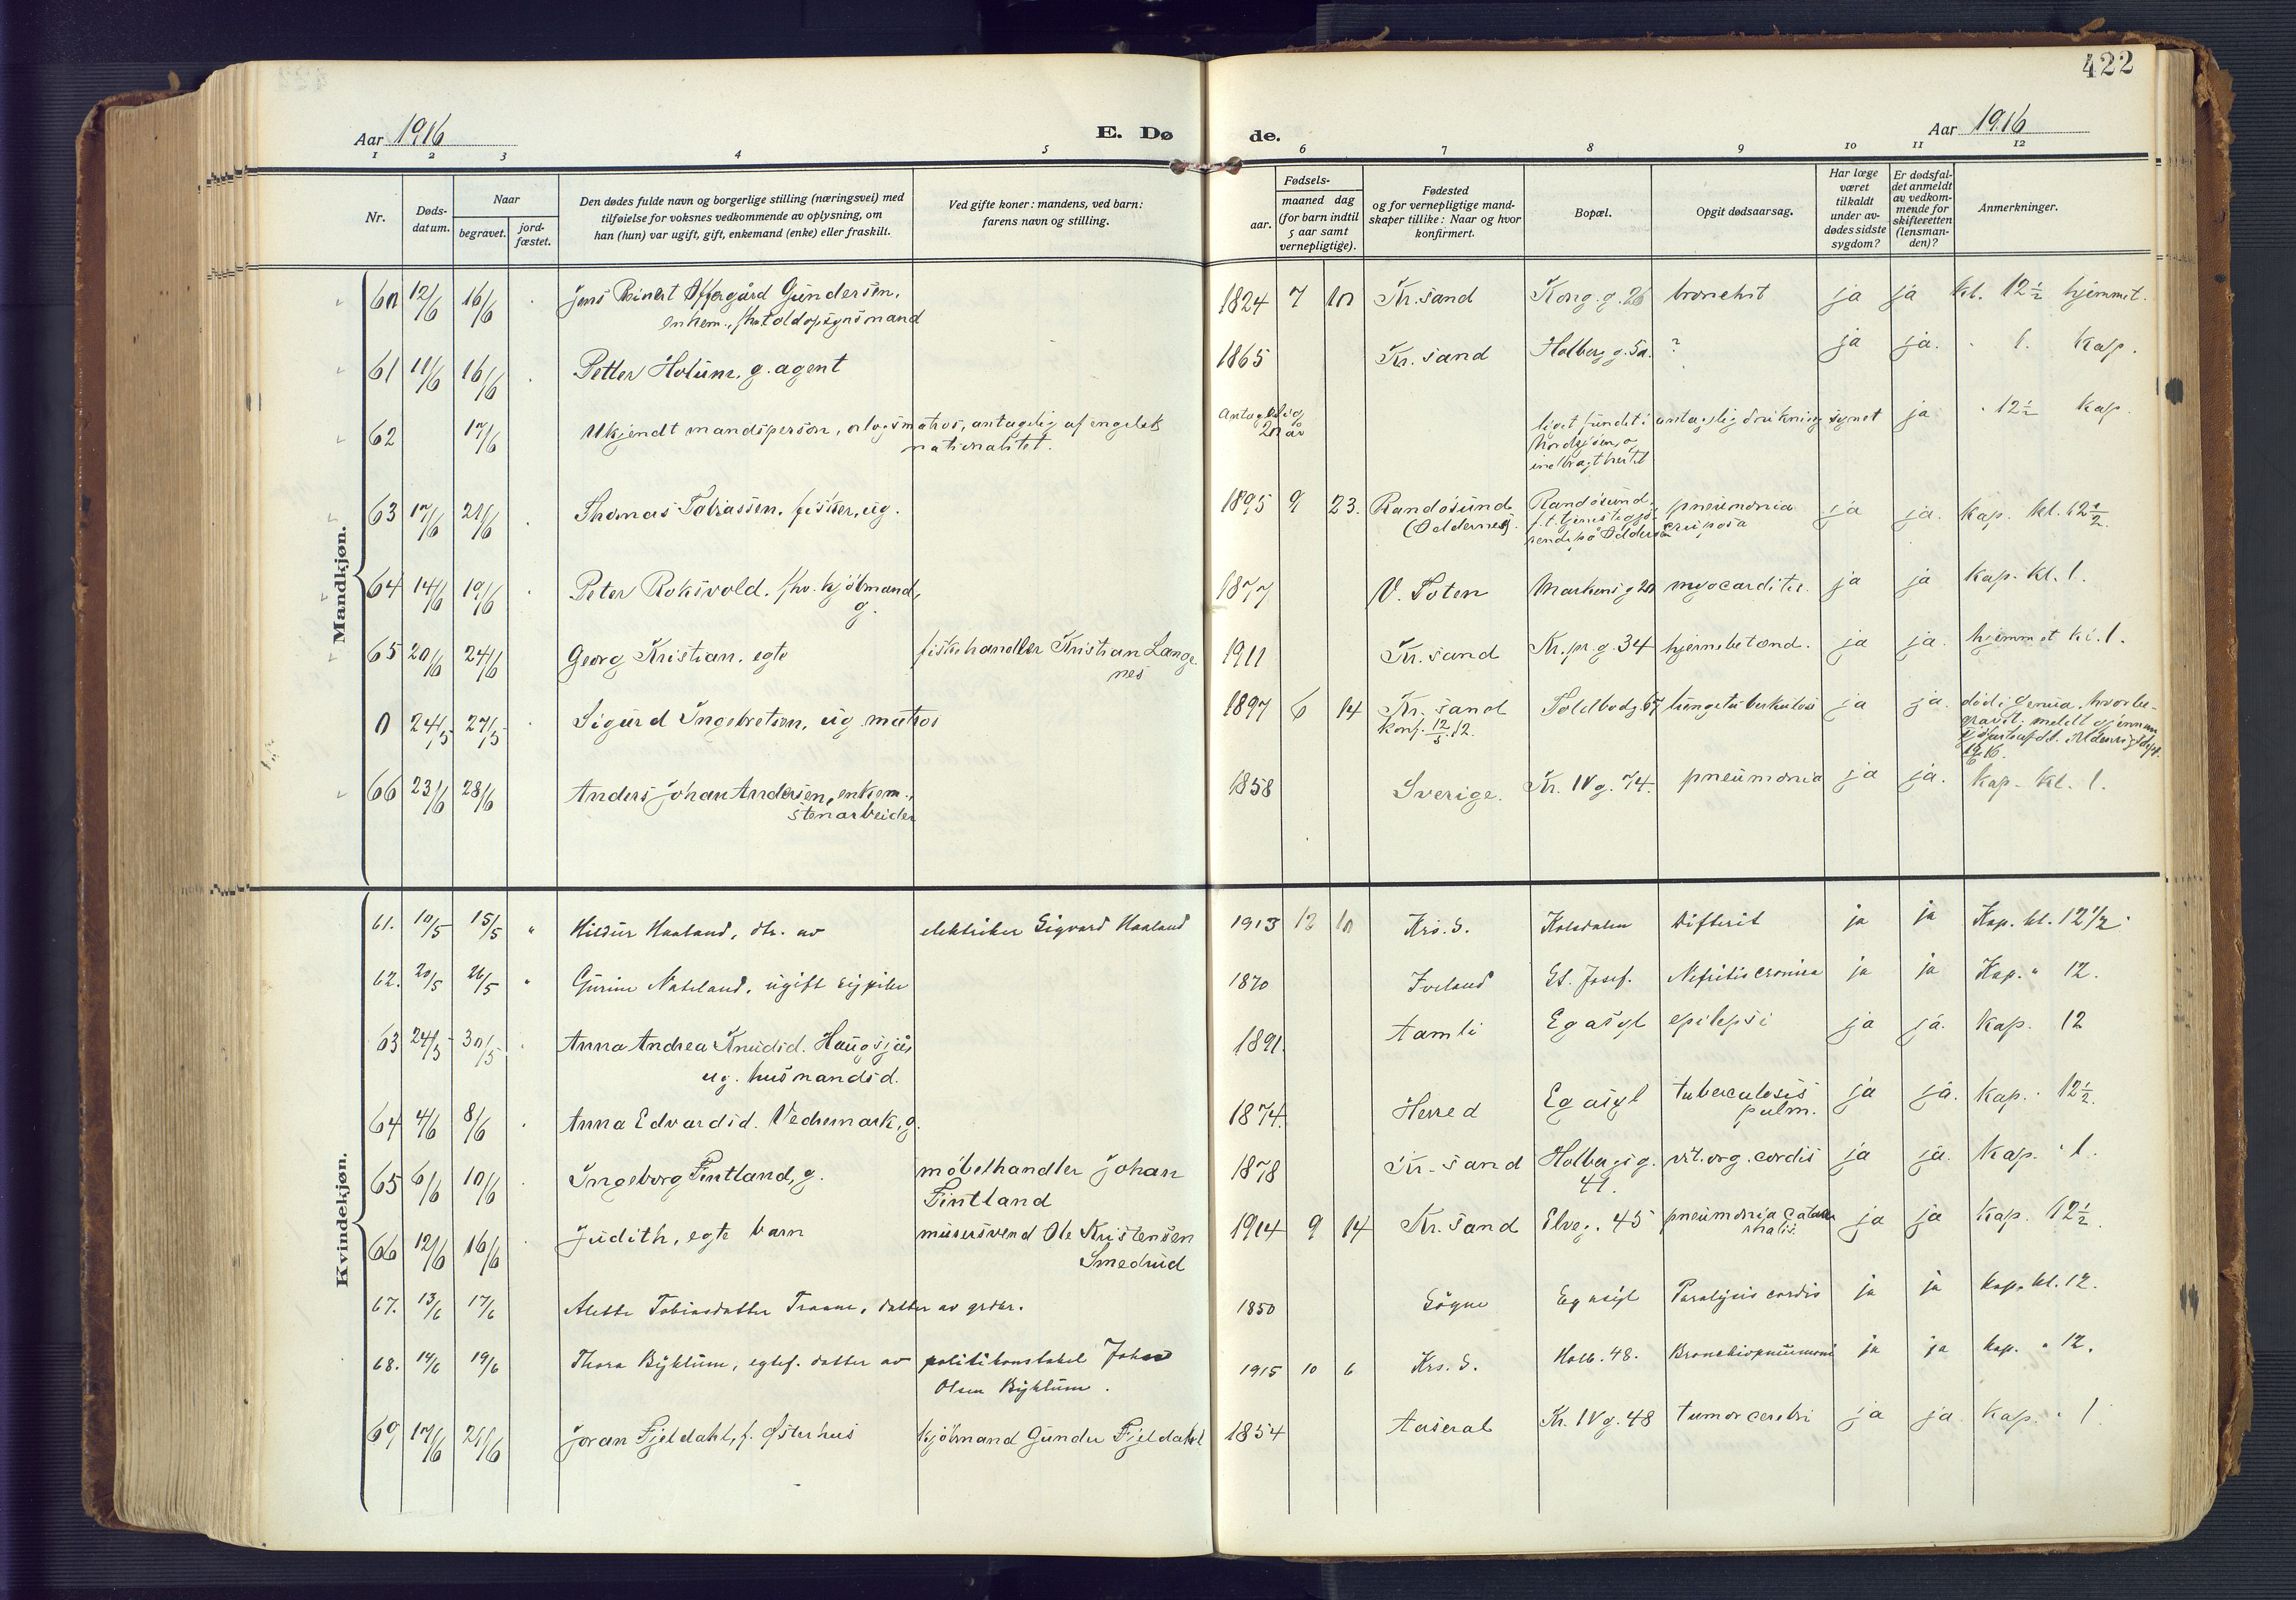 422
Aar 1916
E. Dø de.
Aar 1916
1 2 3 4 5 6 7 8 9 10 11 12
Nr.
Døds-
datum.
Naar
begravet.
jord-
fæstet.
Den dødes fulde navn og borgerlige stilling (næringsvei) med
tilføielse for voksnes vedkommende av oplysning, om
han (hun) var ugift, gift, enkemand (enke) eller fraskilt.
Ved gifte koner: mandens, ved barn:
farens navn og stilling.
Fødsels-
aar.
maaned dag
(for barn indtil
5 aar samt
vernepligtige).
Fødested
og for vernepligtige mand-
skaper tillike: Naar og hvor
konfirmert.
Bopæl.
Opgit dødsaarsag.
Har læge
været
tilkaldt
under av-
dødes sidste
sygdom?
Er dødsfal-
det anmeldt
av vedkom-
mende for
skifteretten
(lensman-
den)?
Anmerkninger.
Mandkjøn.
60 12/6 16/6 Jens Reinert Offergård Gundersen, 1824 7 10 Kr.sand Kong.g. 26 bronchit ja ja kl. 12½ hjemmet.
enkem., fhv toldopsynsmand
61 11/6 16/6 Petter Holum, g. agent 1865 Kr.sand Holberg g. 5a. ? ja ja. 1. Kap.
62 17/6 Ukjendt mandsperson, orlogsmatros, antagelig af engelsk Antagelig liget fundet i antagelig drukning synet ja 12½ Kap.
nationalitet. 20 år Nordsjøen, og
indbragt hertil
63 17/6 21/6 Thomas Tobiassen, fisker, ug. 1895 9 23. Randøsund Randøsund, pneumonia ja ja. Kap. kl. 12½.
(Oddernes). f.t. tjenestegjø- cruposa
rende på Odderøen
64 14/6 19/6 Peter Roksvold, fhv. kjøbmand, 1877 V. Toten Markens g 20 myocarditis. ja ja Kap. kl. 1.
g.
65 20/6 24/6 Georg Kristian, egte fiskehandler Kristian Lange- 1911 Kr.sand Kr.pr.g. 34 hjernebetænd. ja ja. hjemmet kl. 1.
nes
0 24/5 27/5 Sigurd Ingebretsen, ug. matros 1897 6 14 Kr.sand Toldbodg. 67 lungetuberkulose ja ja. død i Genua, hvor be-
konf. 12/5.12. gravet; meldt gjennem
66 23/6 28/6 Anders Johan Andersen, enkem., 1858 Sverige. Kr. IV g. 74. pneumonia ja ja. Kap. kl. 1.
stenarbeider
Kvindekjøn.
61. 10/5 15/5 " Hildur Haaland, dtr. av elektriker Sigvard Haaland 1913 12 10 Krs. S. Kolsdalen Difterit ja ja Kap. kl. 12 1/2.
62. 20/5 26/5 " Gurine Nateland, ugift sypike 1870 Iveland St. Josef. Nefritis cronica ja ja Kap. " 12.
63 24/5 30/5 Anna Andrea Knudsd. Haugsjås 1891. Aamli Eg asyl epilepsi ja ja. Kap. 12
ug. husmandsd.
64 4/6 8/6 Anna Edvardsd. Vedremark, g. 1874. Herred Eg asyl tuberculosis ja ja. Kap. 12½.
pulm.
65 6/6 10/6 Ingeborg Fintland, g. møbelhandler Johan 1878 Kr.sand Holbergsg. vit. org. cordis ja ja. Kap. 1.
Fintland 41.
66 12/6 16/6 Judith, egte barn murersvend Ole Kristensen 1914 9 14 Kr.sand Elveg. 45 pneumonia catar- ja ja Kap. 12½.
Smedrud rhalis.
67. 13/6 17/6 Alette Tobiasdatter Traane, datter av grdbr. 1850 Søgne Eg asyl Paralysis cordis ja ja Kap. kl. 12.
68. 14/6 19/6 Thora Byklum, egtef. datter av politikonstabel Johan 1915 10 6 Krs. S. Holb. 48. Bronchiopneumoni ja ja Kap. " 12.
Olsen Byklum.
69 17/6 21/6 Joran Fjeldahl, f. Østerhus kjøbmand Gunder Fjeldahl 1854 Aaseral Kr. IV g. 48 tumor cerebri ja ja. Kap. " 1